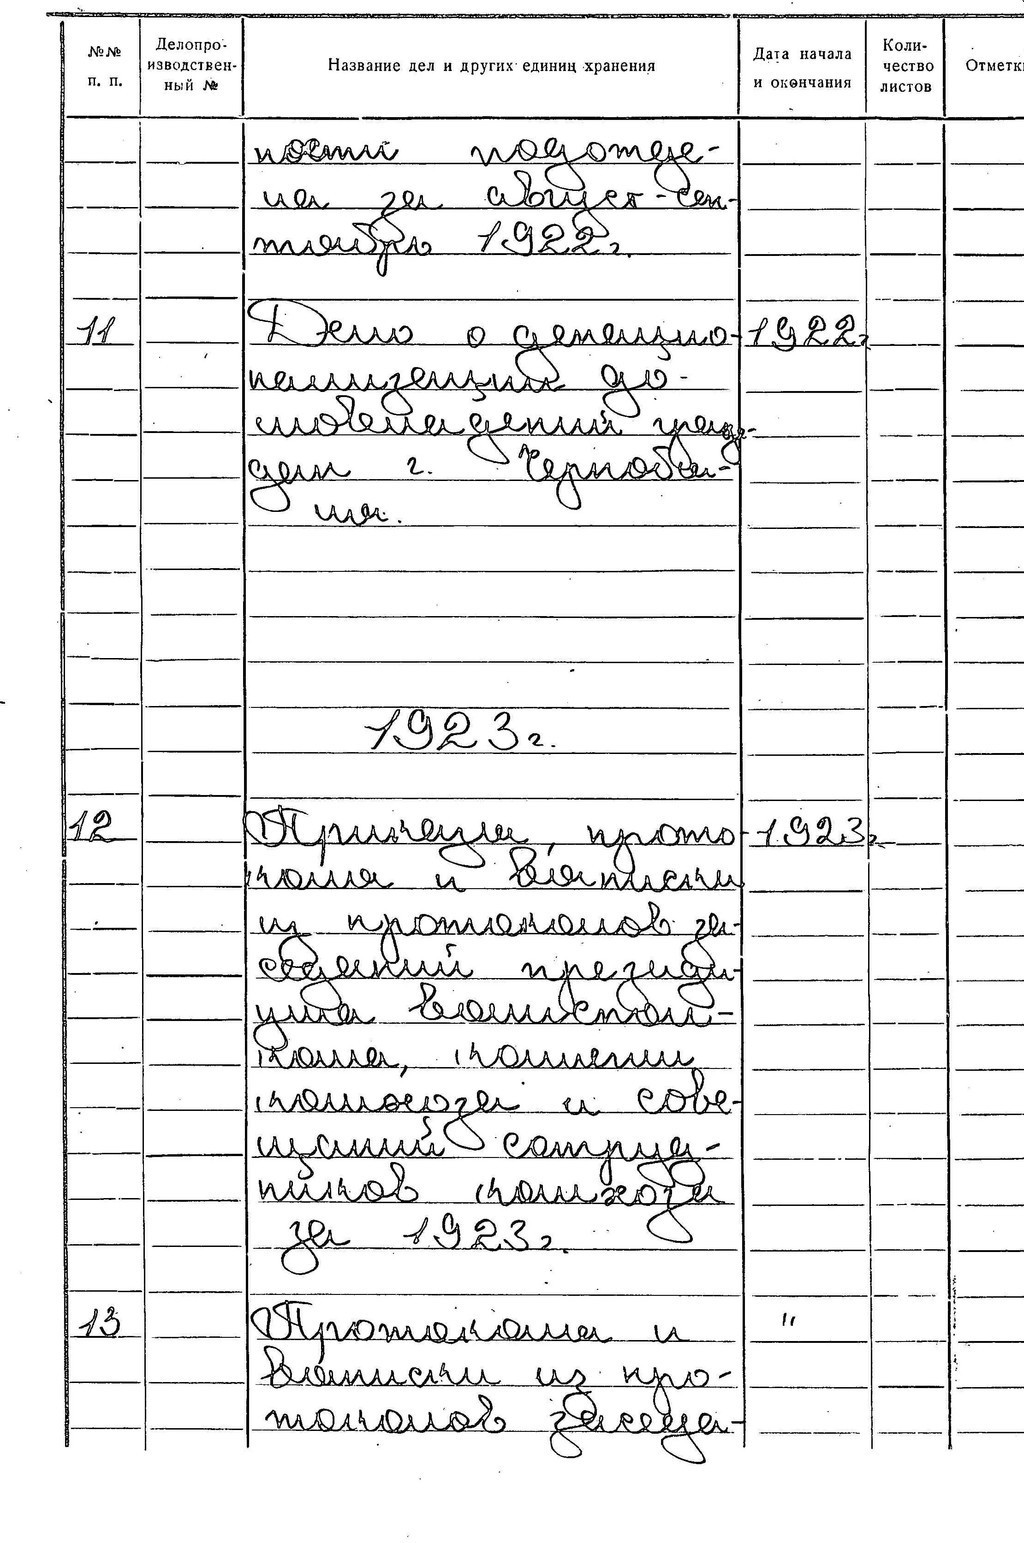 №№ п. п.
Делопро-изводствен-ный №
Название дел и других единиц хранения
Дата начала и окончания
Коли-чество листов
Отметк
ности подотде-
ла за август-сен-
тябрь 1922 г.
11 Дело о денацио- 1922 г.
нализации до-
мовладений граж-
дан г. Чернобы-
ля.
1923 г.
12 Приказы, прото- 1923 г.
колы и выписки
из протоколов за-
седаний президи
ума волиспол-
кома,
комхоза и сове-
щаний сотруд-
ников комхоза
за 1923 г.
13 Протоколы и "
выписки из про-
токолов заседа-